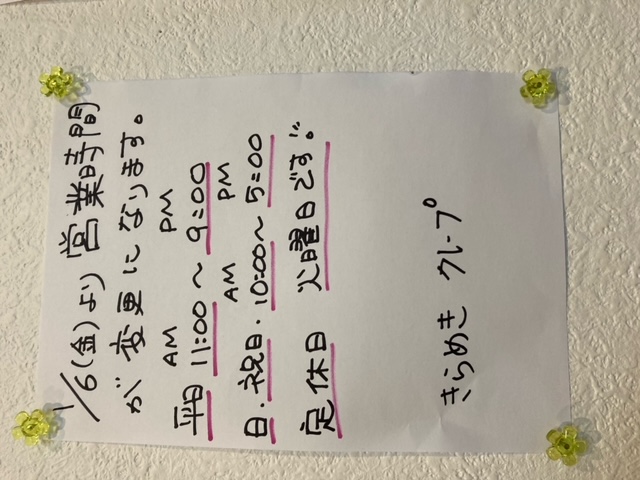 1/6(金)より営業時間
が変更になります。
AM PM
平日 11:00～9:00
AM PM
日.祝日.10:00～5:00
定休日 火曜日です。
きらめき クレープ